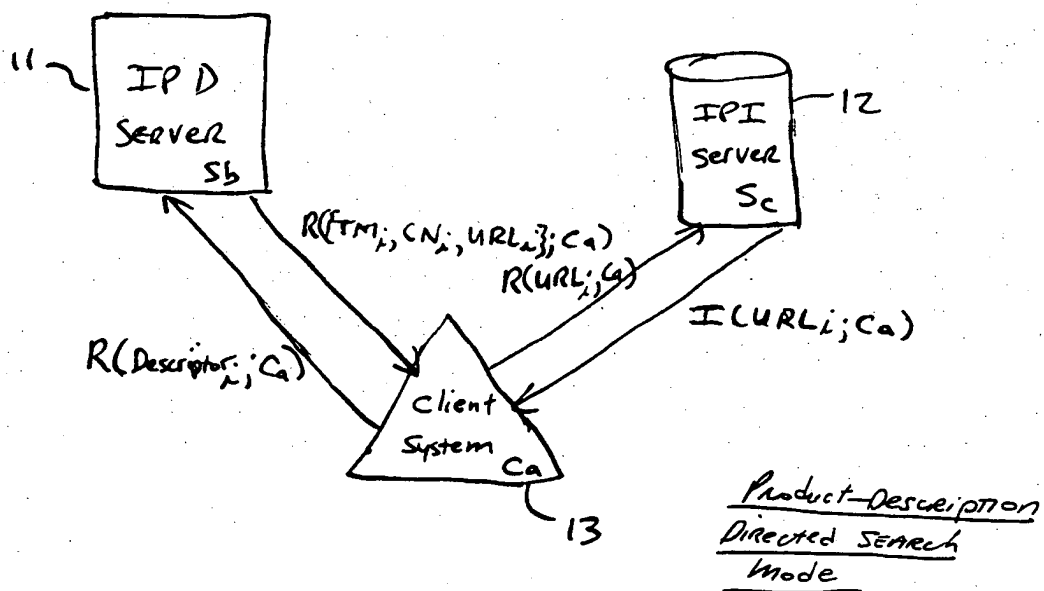 11
IPD
SERVER
Sb
12
IPI
Server
Sc
R({TMi, CNi, URLi}; Ca)
R(URLi; Ca)
I(URLi; Ca)
R(Descriptori; Ca)
Client
System
Ca
13
Product-Description
Directed SEARCH
Mode